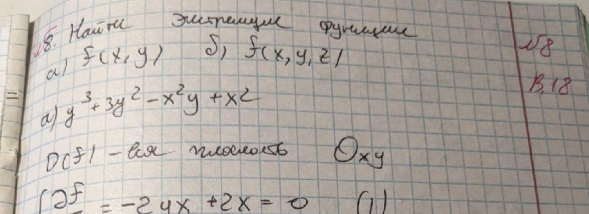 8. Найти экстремум функции
а) f(x, y)   б) f(x, y, z)
№8
В.18
а) y³ + 3y² - x²y + x²
D(f) - вся плоскость Oxy
∂f = -2yx + 2x = 0 (1)